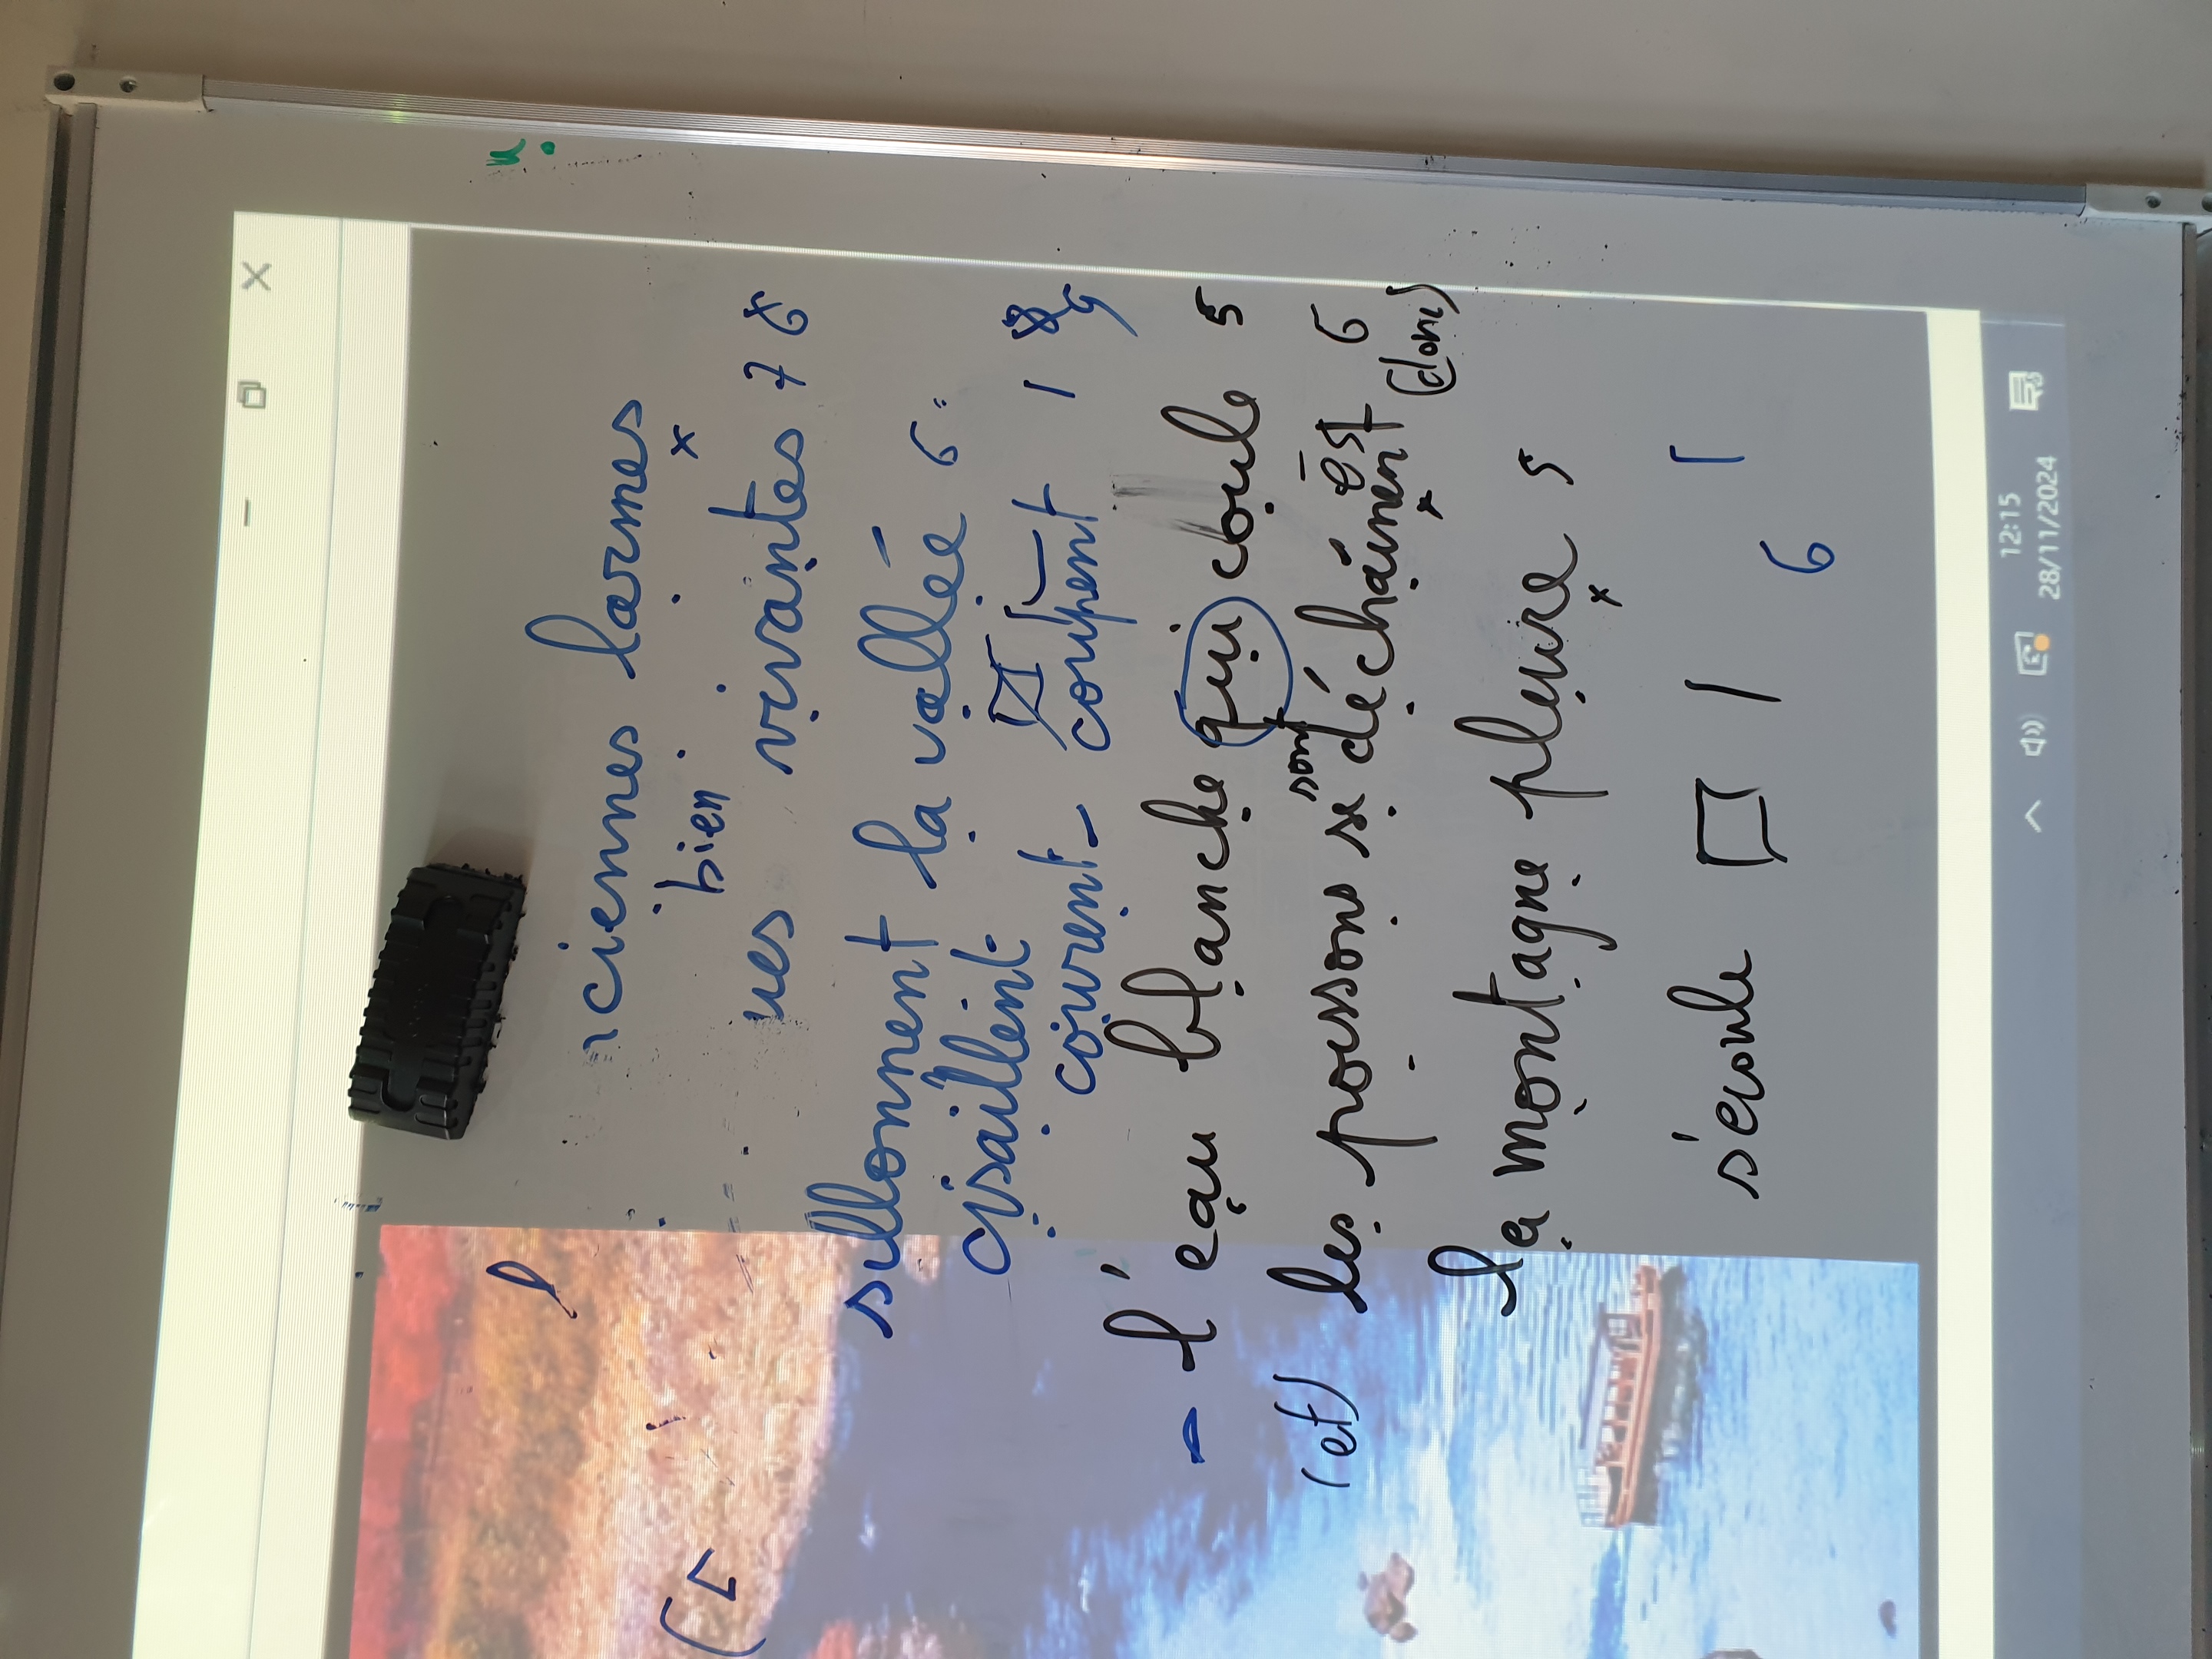 larmes
bien
vivantes 7 8
sillonnent la vallée 6
cisaillent
courent - coupent
- l'eau blanche qui coule 5
sont
(et) les poissons se déchaînent 6
est (dom)
la montagne pleure 5
s'écoule
6
12:15
28/11/2024